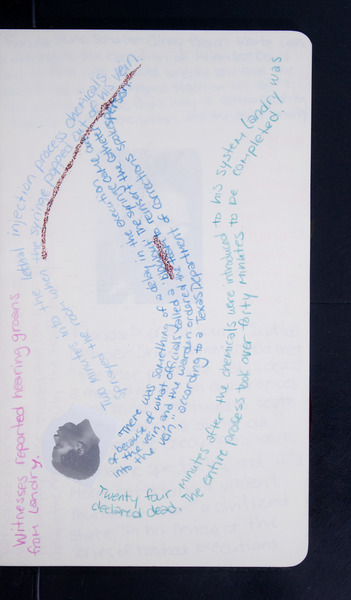 Witnesses reported hearing groans
from Landry.
Two minutes into the lethal injection process chemicals
sprayed the room when the syringe popped out of his vein
"There was something of a delay in the execution
because of what officials called a The syringe came out
into the vein, and the warden ordered to reinsert the
the vein," according to a Texas Department of Corrections
Twenty four minutes after the chemicals were introduced to his system Landry was
declared dead. The entire process took over forty minutes to be completed.